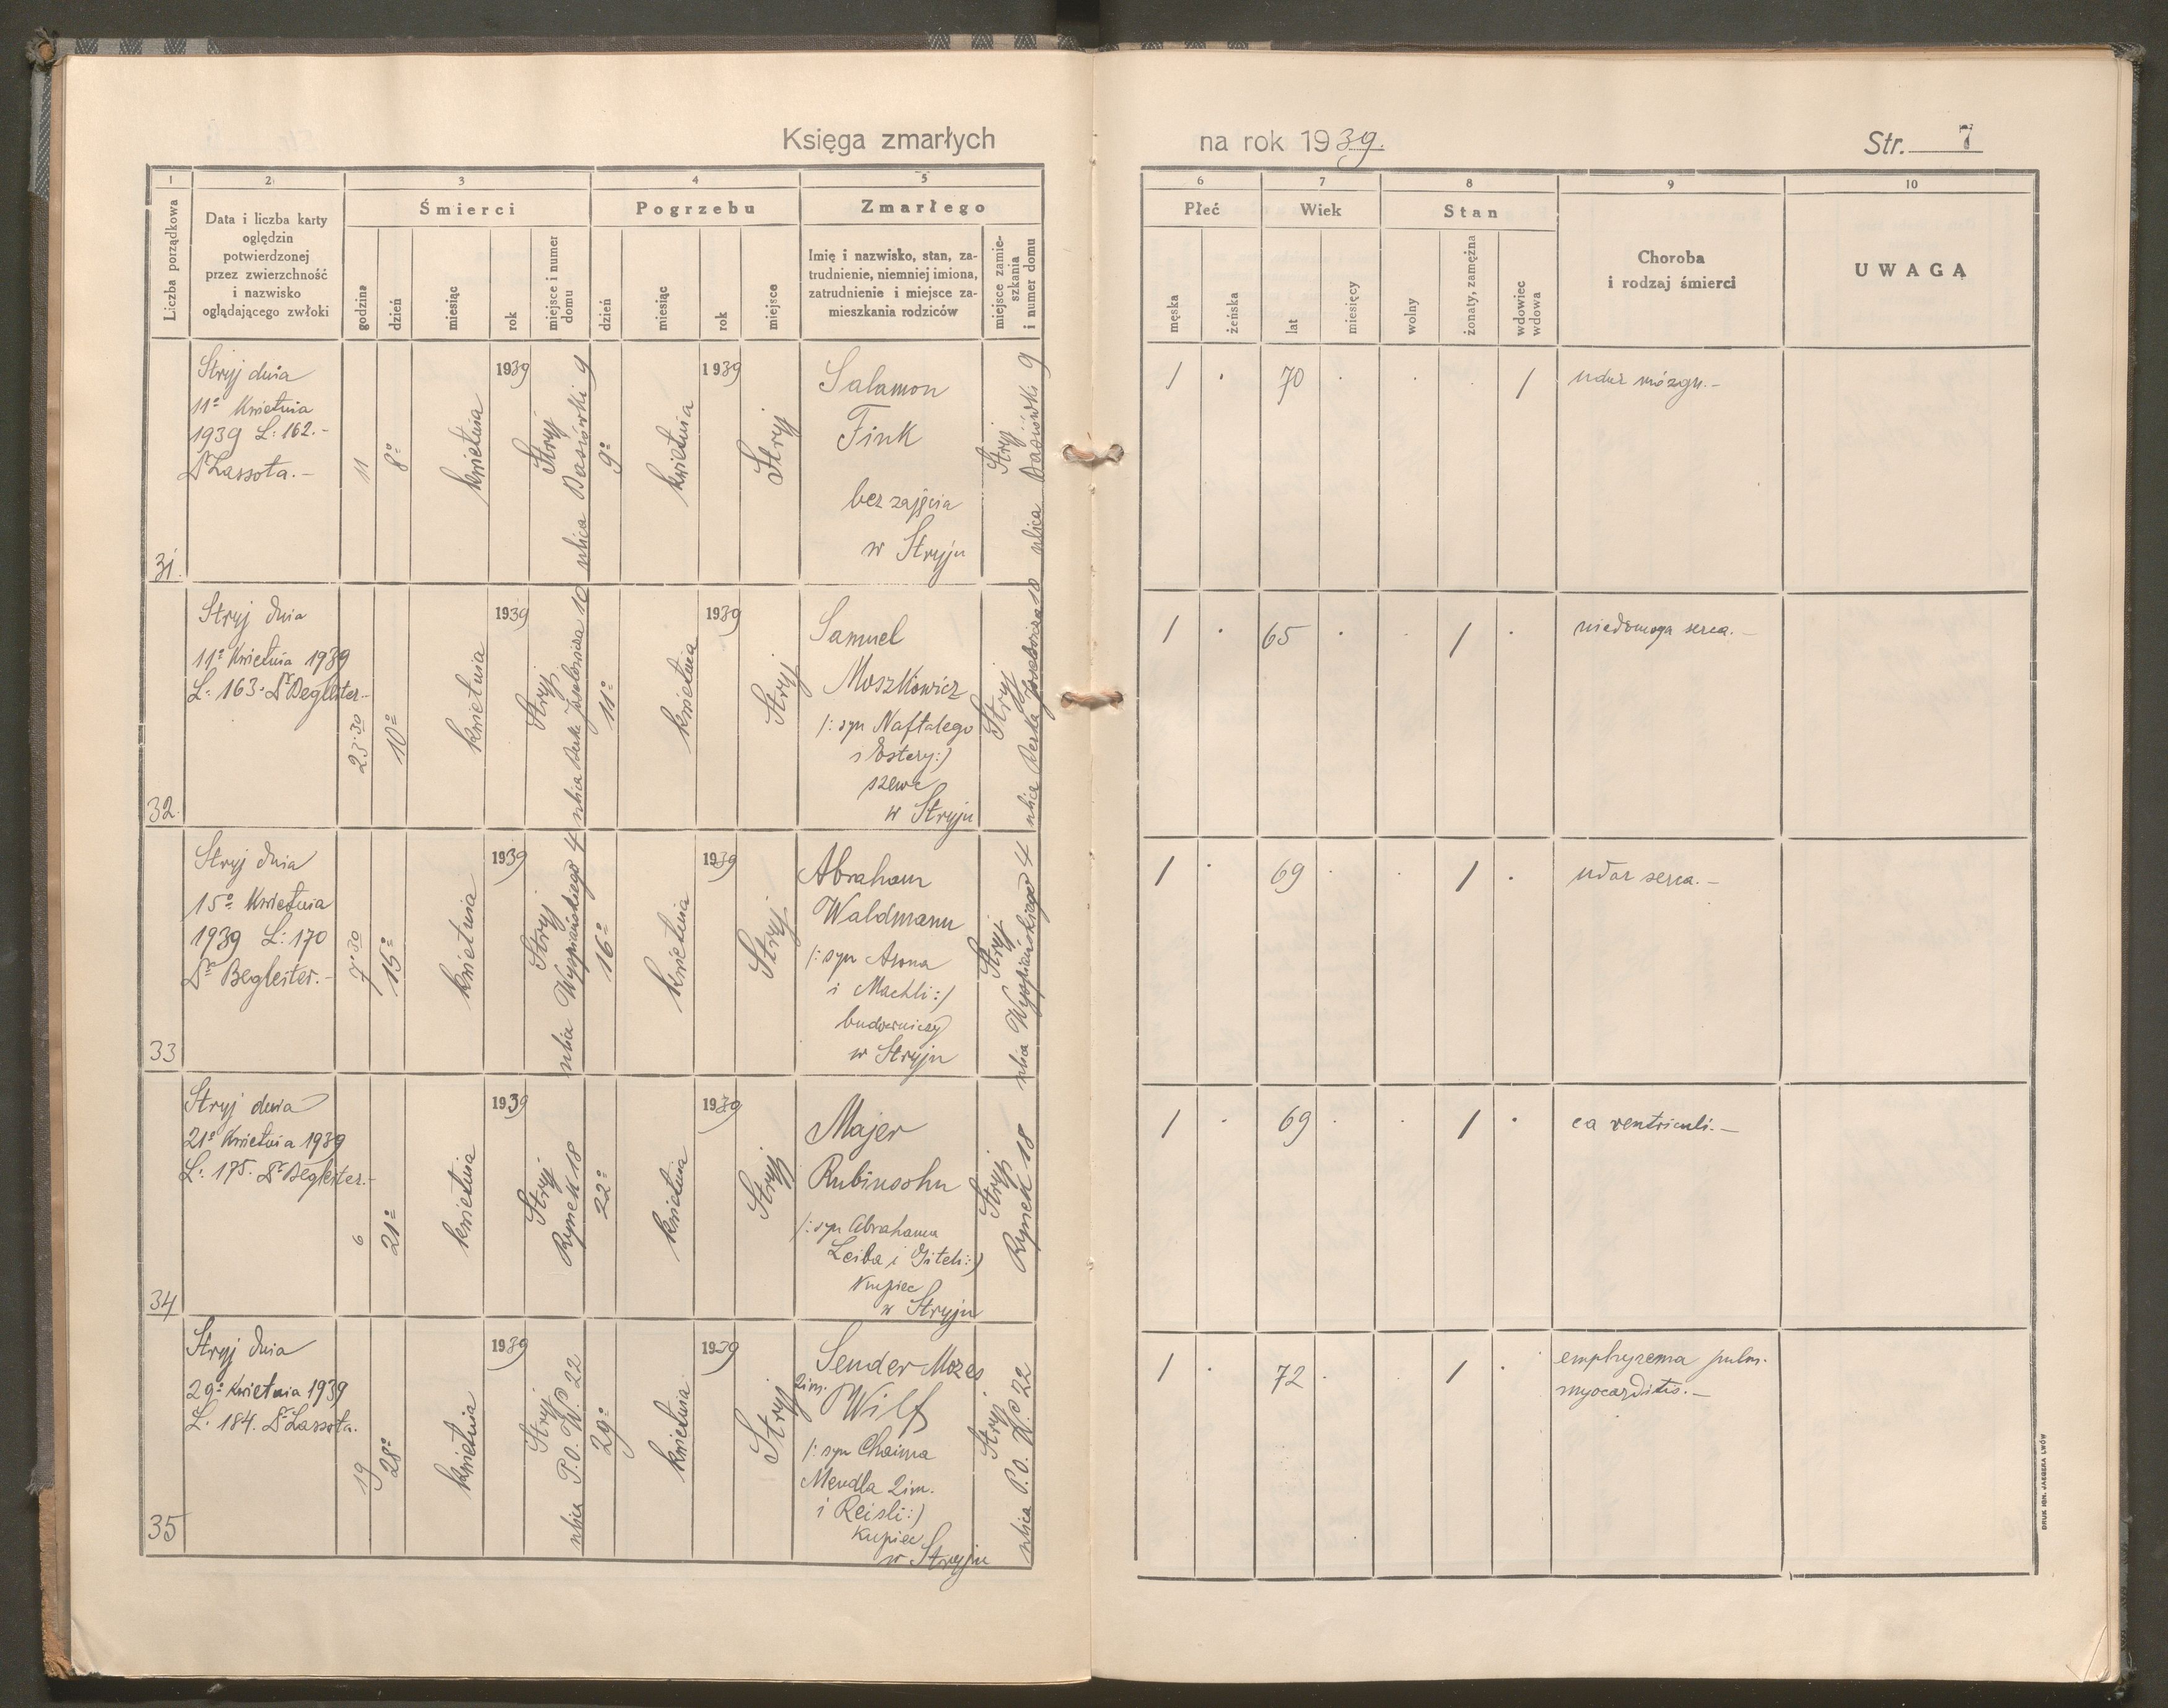 Księga zmarłych
na rok 1939.
Str. 7
1
2
3
4
5
6
7
8
9
10
Liczba porządkowa
Data i liczba karty
oględzin
potwierdzonej
przez zwierzchność
i nazwisko
oglądającego zwłoki
Śmierci
godzina
dzień
miesiąc
rok
miejsce i numer
domu
Pogrzebu
dzień
miesiąc
rok
miejsce
Zmarłego
Imię i nazwisko, stan, za-
trudnienie, niemniej imiona,
zatrudnienie i miejsce za-
mieszkania rodziców
miejsce zamie-
szkania
i numer domu
Płeć
męska
żeńska
Wiek
lat
miesięcy
Stan
wolny
żonaty, zamężna
wdowiec
wdowa
Choroba
i rodzaj śmierci
UWAGA
31.
Stryj dnia
11º Kwietnia
1939 L: 162.-
Dr Lassota.-
11
8º
kwietnia
1939
Stryj
ulica Basiówki 9
9º
kwietnia
1939
Stryj
Salamon
Fink
bez zajęcia
w Stryju
Stryj
ulica Basiówki 9
1
70
1
udar mózgu.-
32.
Stryj dnia
11º Kwietnia 1939
L: 163. Dr Begleiter.-
23.30
10º
kwietnia
1939
Stryj
ulica Berka Joselowicza 10
11º
kwietnia
1939
Stryj
Samuel
Moszkowicz
/: syn Naftalego
i Estery:/
szewc
w Stryju
Stryj
ulica Berka Joselowicza 10
1
65
1
niedomoga serca.-
33
Stryj dnia
15º Kwietnia
1939 L: 170
Dr Begleiter.-
7.30
15º
kwietnia
1939
Stryj
ulica Wyspiańskiego 4
16º
kwietnia
1939
Stryj
Abraham
Waldmann
/: syn Arona
i Machli:/
budowniczy
w Stryju
Stryj
ulica Wyspiańskiego 4
1
69
1
udar serca.-
34
Stryj dnia
21º Kwietnia 1939
L: 175. Dr Begleiter.-
6
21º
kwietnia
1939
Stryj
Rynek 18
22º
kwietnia
1939
Stryj
Majer
Rubinsohn
/: syn Abrahama
Leiba i Giteli:/
Kupiec
w Stryju
Stryj
Rynek 18
1
69
1
ca ventriculi.-
35
Stryj dnia
29º Kwietnia 1939
L: 184. Dr Lassota.
19
28º
kwietnia
1939
Stryj
ulica P.O.W. 22
29º
kwietnia
1939
Stryj
Sender Mozes
2im.
Wilf
/: syn Chaima
Mendla 2im.
i Reisli:/
Kupiec
w Stryju
Stryj
ulica P.O.W. 22
1
72
1
emphyzema pulm.
myocarditis.-
DRUK IGN. JAEGERA LWÓW